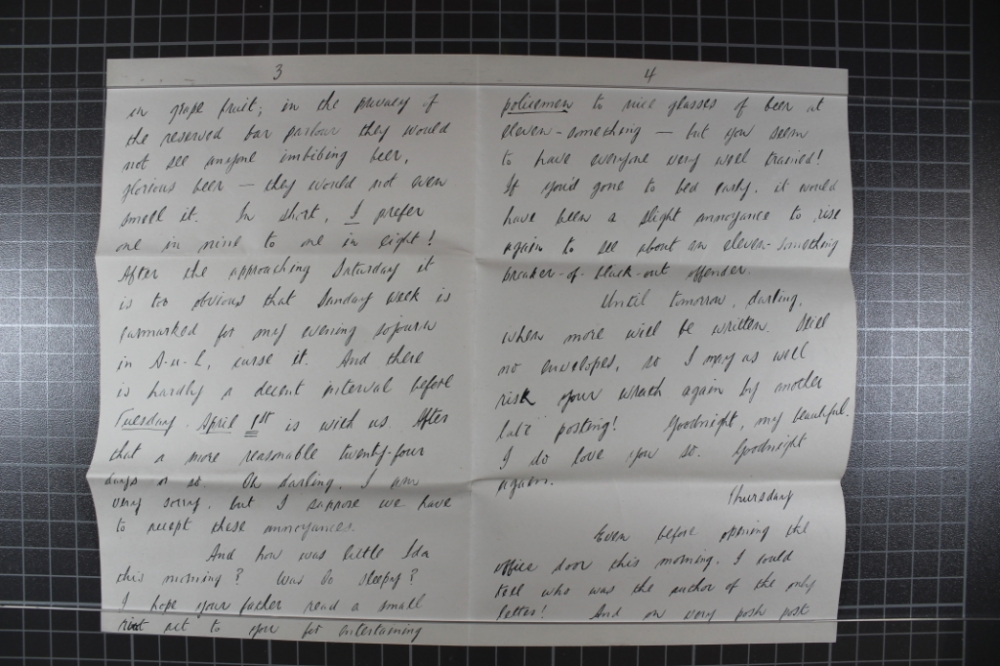 3
in grape fruit; in the privacy of
the reserved bar parlour they would
not see anyone imbibing beer,
glorious beer — they would not even
smell it. In short, I prefer
one in nine to one in eight!
After the approaching Saturday it
is too obvious that Sunday week is
earmarked for my evening sojourn
in A-u-L, curse it. And there
is hardly a decent interval before
Tuesday April 1st is with us. After
that a more reasonable twenty-four
days or so. Oh darling, I am
very sorry, but I suppose we have
to accept these annoyances.
And how was little Ida
this morning? Was 'o sleepy?
I hope your father read a small
riot act to you for entertaining
4
policemen to nice glasses of beer at
eleven-something — but you seem
to have everyone very well trained!
If you'd gone to bed early, it would
have been a slight annoyance to rise
again to see about an eleven-something
breaker-of-black-out offender.
Until tomorrow, darling,
when more will be written. Still
no envelopes, so I may as well
risk your wrath again by another
late posting! Goodnight, my beautiful.
I do love you so. Goodnight
again.
Thursday
Even before opening the
office door this morning, I could
tell who was the author of the only
letter! And on very posh post